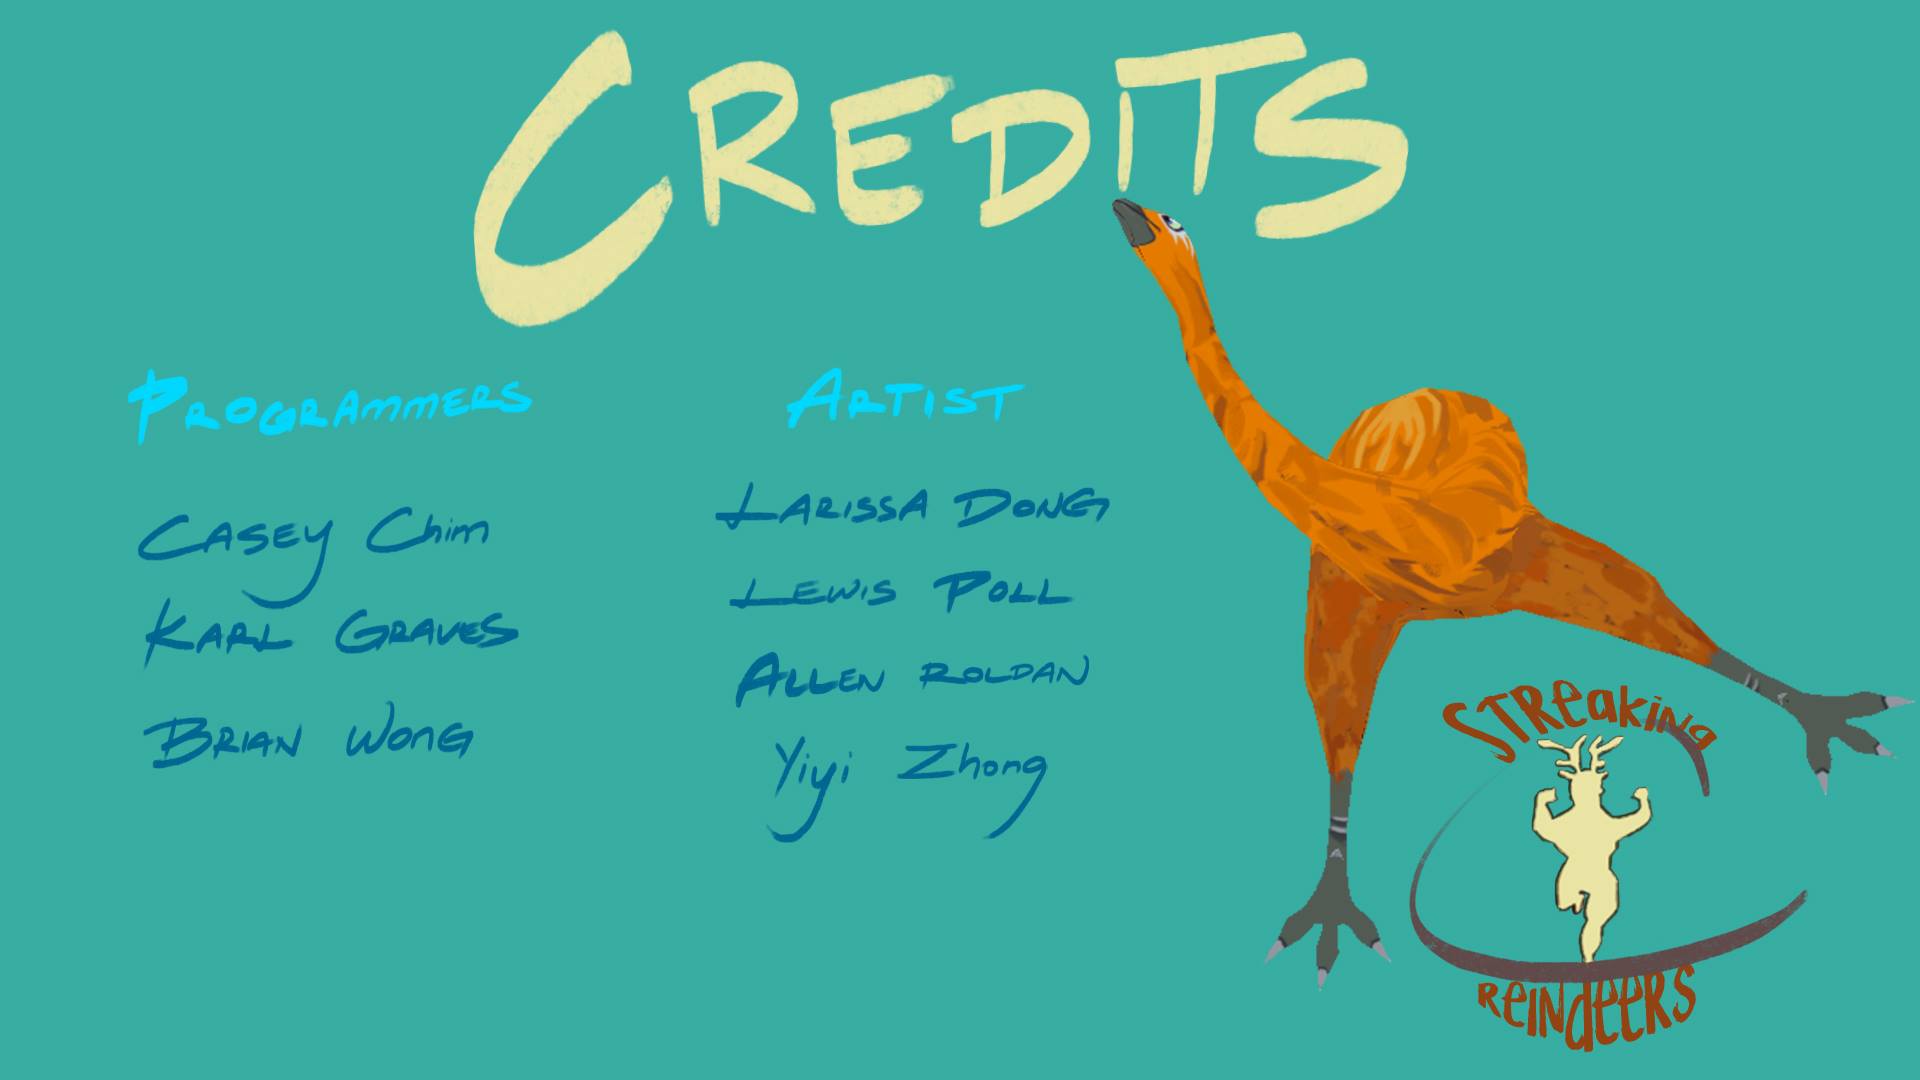 CREDITS
PROGRAMMERS
CASEY Chim
KARL GRAVES
BRIAN WONG
ARTIST
LARISSA DONG
LEWIS POLL
ALLEN ROLDAN
Yiyi Zhong
STREaking
REINdEERS